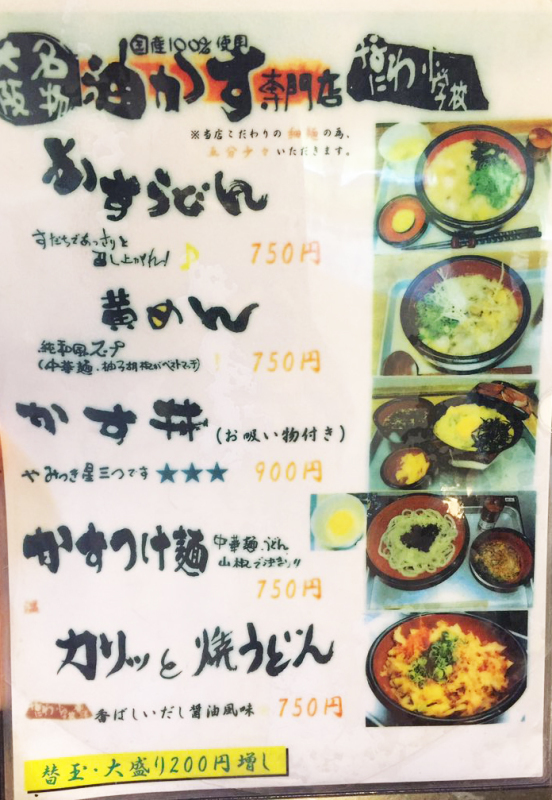 国産100%使用
大阪名物 油かす専門店
なにわ小学校
※当店こだわりの細麺の為、
五分少々いただきます。
かすうどん
すだちであっさりと
召し上がれ!
750円
黄めん
純和風スープ
(中華麺・柚子胡椒がベストマッチ)
750円
かす丼(お吸い物付き)
やみつき星三つです★★★ 900円
かすつけ麺
中華麺・うどん
山椒で決まり!!
750円
カリッと焼うどん
香ばしいだし醤油風味 750円
替玉・大盛り200円増し